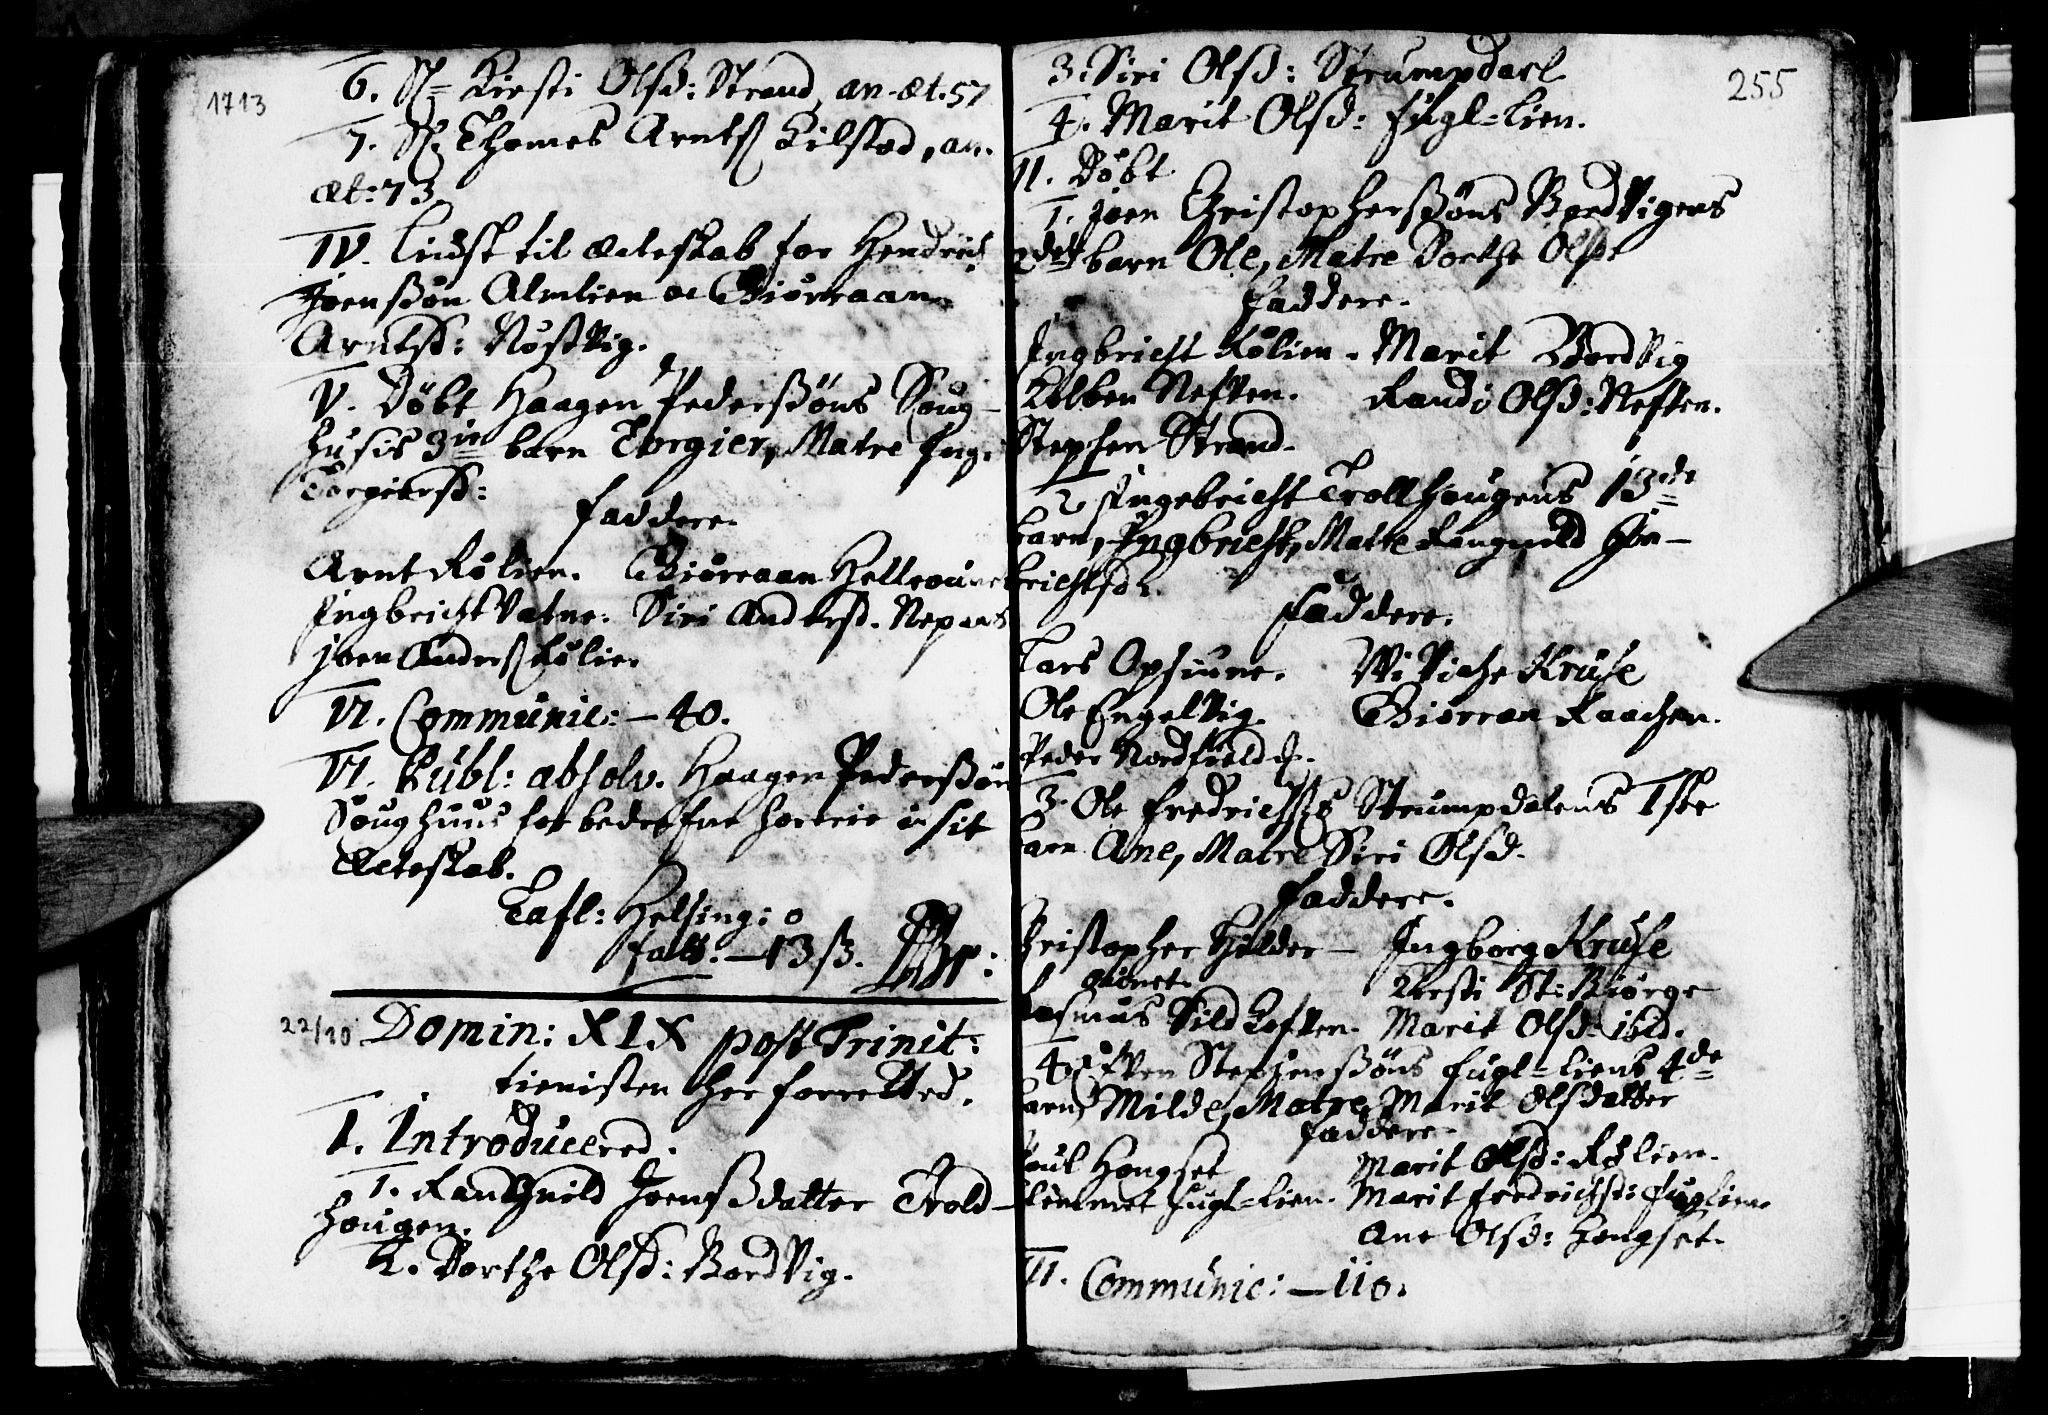 1713
6. S= Kirsti Olsd: Strand, an. æt. 57
7. S. Thomes Arnts Kilstad, an.
æt: 73
IV. Liust til Ecteskab for Hendrich
Joensøn Almlien oc Giørraan
Arntsd: Nøstvig.
V. Døbt Haagen Pedersøns Soug-
husis 3ie barn Torgier, Matre Ing.
Torgiersd:
Faddere.
Arnt Kølien. Giørraan Helleoune
Ingbricht Vatne. Siri Andersd. Nepaas
Joen Anders Kølie.
VI. Communic: — 40.
VI. Publ: absolv. Haagen Pedersøn
Soughuus for bedrefne horerie i sit
Ecteskab.
Tafl: Helsing: 0
Fatt: — 13 ß.
22/10 Domin: XIX post Trinit:
tienisten her forretted.
I. Introducered.
1. Rangnild Joensdatter Trold-
hougen.
2. Dorthe Olsd: Bordvig.
255
3. Siri Olsd: Strumpdael
4. Marit Olsd: Fugl-lien.
II. Døbt
1. Joen Christophersøns Bordvigens
2det barn Ole, Matre Dorthe Olsdt
Faddere.
Ingbricht Kølien. Marit Bordvig
Kolben Neften. Randi Olsd: Neften.
Stephen Strand.
2. Ingebricht Trollhougens 13de
barn, Ingbricht, Matre Rangnild Jon-
brichtsd.
Faddere.
Lars Opsiune. Wiviche Kruse
Ole Engelvig. Giørran Raachen.
Peder Nordfield
3. Ole Fredrichs Strumpdalens 1ste
barn Ane, Matre Siri Olsd.
Faddere.
Christopher Hilder- Ingborg Kruse
Kirsti St: Biørge
Rasmus Sildtoften. Marit Olsd. ibid.
4. Sven Stephensøns Fugl-liens 4de
barn Milde, Matre, Marit Olsdatter
Faddere.
Poul Hongset Marit Olsd: Kølien.
Clemmet Fugl-lien. Marit Fredrichsd: Fuglien
Ane Olsd: Hongset.
II. Communic: — 110.